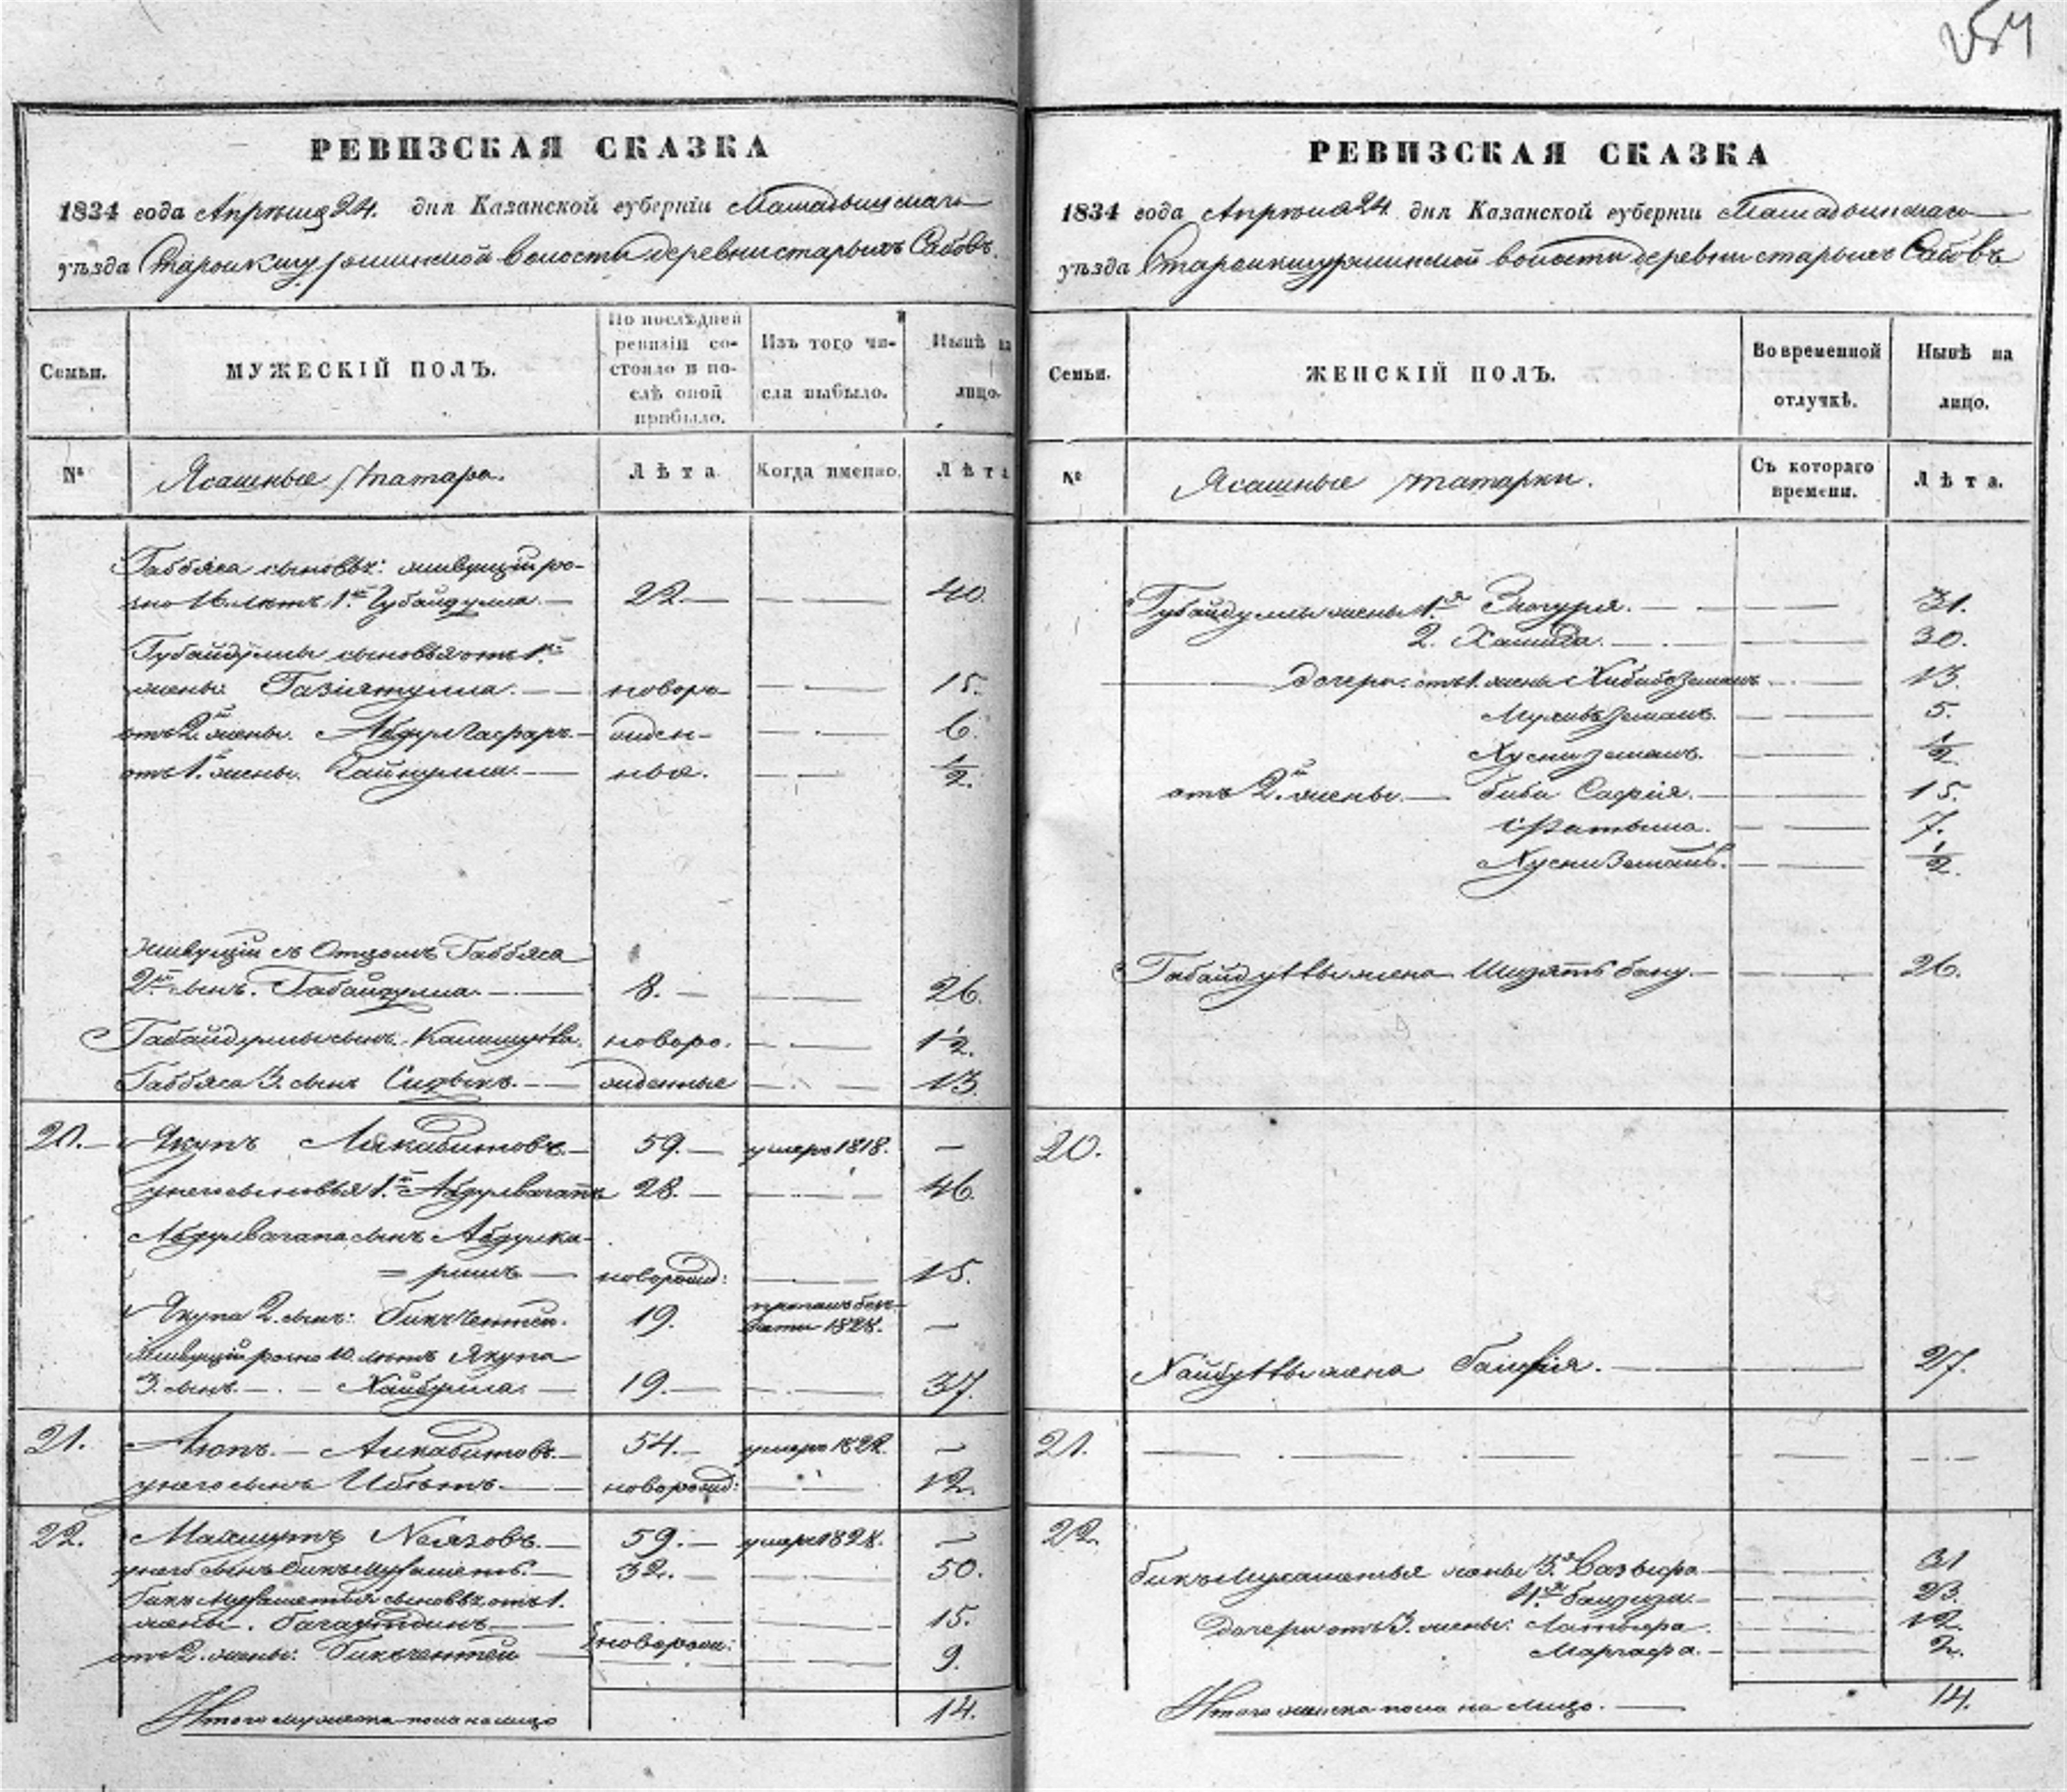 254
РЕВИЗСКАЯ СКАЗКА
1834 года Апрѣля 24. дня Казанской губерніи Мамадышскаго
уѣзда Староикшурминской волости деревни старыхъ Сабовъ.
Семьи.
МУЖЕСКІЙ ПОЛЪ.
По послѣдней
ревизіи со-
стояло и по-
слѣ оной
прибыло.
Изъ того чи-
сла выбыло.
Нынѣ на
лицо.
№
Ясашные татара.
Лѣта
Когда именно.
Лѣта
Габбяса сыновья: живущій ро-
зно 16. лѣтъ 1.й Губайдулла. — 22. — 40.
Губайдуллы сыновья отъ 1.й
жены Газіятулла. — новоро- 15.
отъ 2.й жены. Абдулгафаръ. — жден- 6.
отъ 1.й жены. Зайнулла. — ные. ½.
живущій съ Отцомъ Габбяса
2.й сынъ. Габайдулла. — 8. — 26.
Габайдуллы сынъ. новоро. 1½.
Габбяса 3. сынъ Сидыкъ. — жденные 13.
20. Якупъ 59. — умеръ 1818. —
у него сыновья 1.й Абдулвагапъ 28. — 46.
Абдулвагапа сынъ Абдулка-
= римъ — новорожд: 15.
Якупа 2. сынъ: Бикчентей. 19. 1828. —
живущій розно 10. лѣтъ Якупа
3. сынъ. — Хайбулла. — 19. — 37.
21. Аюпъ. — 54. — умеръ 1822. —
у него сынъ новорожд: 12.
22. Махмутъ 59. — умеръ 1828. —
у него сынъ Бикъмухаметъ. 32. — 50.
Бикъмухаметья сыновья отъ 1.
жены. Багаутдинъ — 15.
отъ 2. жены: Бикчентей — новорож: 9.
Итого мужеска пола на лицо 14.
РЕВИЗСКАЯ СКАЗКА
1834 года Апрѣля 24. дня Казанской губерніи Мамадышскаго
уѣзда Староикшурминской волости деревни старыхъ Сабовъ
Семьи.
ЖЕНСКІЙ ПОЛЪ.
Во временной
отлучкѣ.
Нынѣ на
лицо.
№
Ясашные татарки.
Съ котораго
времени.
Лѣта.
Губайдуллы жены 1.я Зюгуря. — 31.
2. Хамида. — 30.
дочери. отъ 1. жены Хибибземалъ 13.
5.
Хусниземалъ. ½
отъ 2.й жены. — Биби Сафія. — 15.
Фатыма. 7.
Хусниземалъ. ½.
Габайдуллы жена бану. — 26.
20.
Хайбуллы жена 27.
21.
22.
Бикъмухаметья жены 3.я 31
4.я 23.
дочери отъ 3. жены: 12.
2.
Итого женска пола на лицо. — 14.